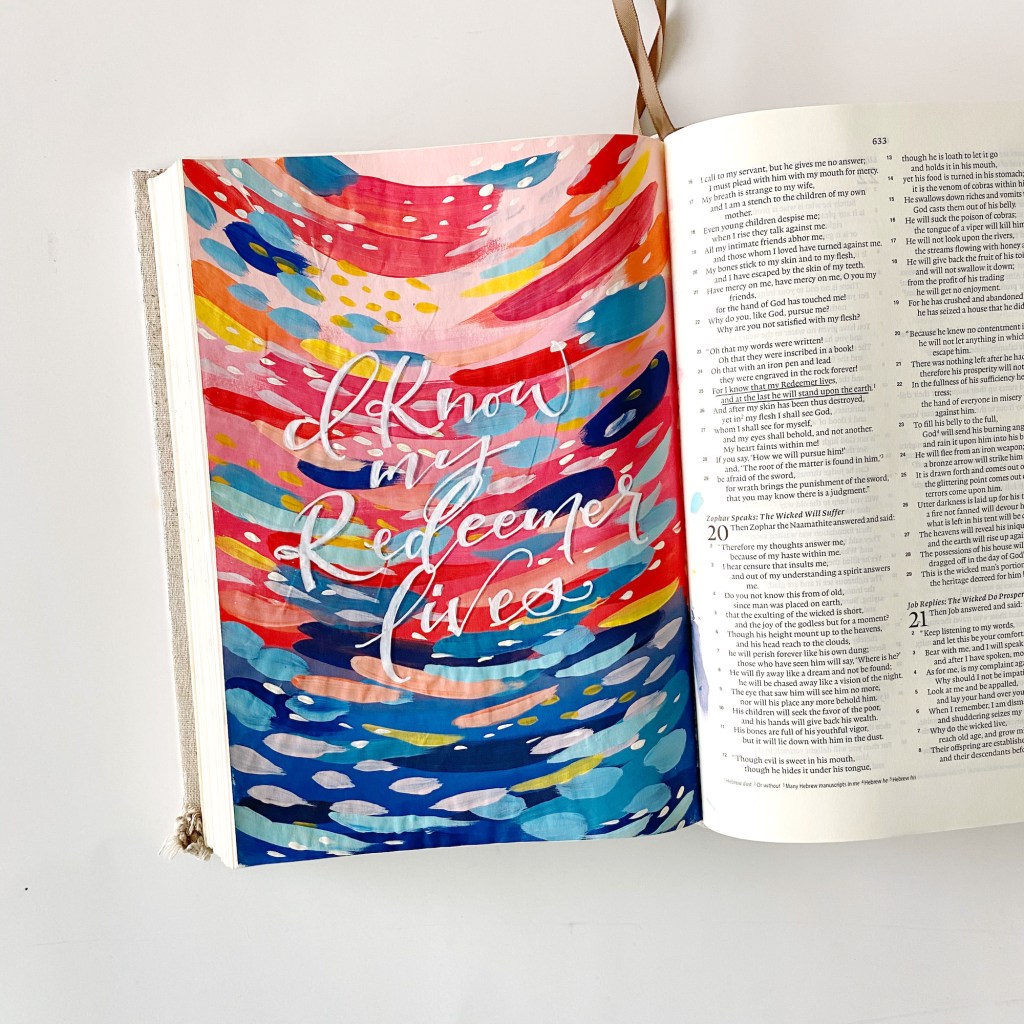 I Know
my
Redeemer
lives
633
16 I call to my servant, but he gives me no answer;
I must plead with him with my mouth for mercy.
17 My breath is strange to my wife,
and I am a stench to the children of my own
mother.
18 Even young children despise me;
when I rise they talk against me.
19 All my intimate friends abhor me,
and those whom I loved have turned against me.
20 My bones stick to my skin and to my flesh,
and I have escaped by the skin of my teeth.
21 Have mercy on me, have mercy on me, O you my
friends,
for the hand of God has touched me!
22 Why do you, like God, pursue me?
Why are you not satisfied with my flesh?
23 "Oh that my words were written!
Oh that they were inscribed in a book!
24 Oh that with an iron pen and lead
they were engraved in the rock forever!
25 For I know that my Redeemer lives,
and at the last he will stand upon the earth.
26 And after my skin has been thus destroyed,
yet in my flesh I shall see God,
27 whom I shall see for myself,
and my eyes shall behold, and not another.
My heart faints within me!
28 If you say, 'How we will pursue him!'
and, 'The root of the matter is found in him,'
29 be afraid of the sword,
for wrath brings the punishment of the sword,
that you may know there is a judgment."
Zophar Speaks: The Wicked Will Suffer
20 Then Zophar the Naamathite answered and said:
2 "Therefore my thoughts answer me,
because of my haste within me.
3 I hear censure that insults me,
and out of my understanding a spirit answers
me.
4 Do you not know this from of old,
since man was placed on earth,
5 that the exulting of the wicked is short,
and the joy of the godless but for a moment?
6 Though his height mount up to the heavens,
and his head reach to the clouds,
7 he will perish forever like his own dung;
those who have seen him will say, 'Where is he?'
8 He will fly away like a dream and not be found;
he will be chased away like a vision of the night.
9 The eye that saw him will see him no more,
nor will his place any more behold him.
10 His children will seek the favor of the poor,
and his hands will give back his wealth.
11 His bones are full of his youthful vigor,
but it will lie down with him in the dust.
12 "Though evil is sweet in his mouth,
though he hides it under his tongue,
13 though he is loath to let it go
and holds it in his mouth,
14 yet his food is turned in his stomach;
it is the venom of cobras within
15 He swallows down riches and vomits
God casts them out of his belly.
16 He will suck the poison of cobras;
the tongue of a viper will kill
17 He will not look upon the rivers,
the streams flowing with honey
18 He will give back the fruit of his
and will not swallow it down;
from the profit of his trading
he will get no enjoyment.
19 For he has crushed and abandoned
he has seized a house that he did
20 "Because he knew no contentment
he will not let anything in which
escape him.
21 There was nothing left after he had
therefore his prosperity will not
22 In the fullness of his sufficiency
tress;
the hand of everyone in misery
against him.
23 To fill his belly to the full,
God will send his burning
and rain it upon him into his
24 He will flee from an iron weapon;
a bronze arrow will strike him
25 It is drawn forth and comes out
the glittering point comes out
terrors come upon him.
26 Utter darkness is laid up for his
a fire not fanned will devour
what is left in his tent will be
27 The heavens will reveal his
and the earth will rise up
28 The possessions of his house will
dragged off in the day of God's
29 This is the wicked man's portion
the heritage decreed for him
Job Replies: The Wicked Do Prosper
21 Then Job answered and said:
2 "Keep listening to my words,
and let this be your comfort
3 Bear with me, and I will speak
and after I have spoken,
4 As for me, is my complaint
Why should I not be
5 Look at me and be appalled,
and lay your hand over
6 When I remember, I am
and shuddering seizes my
7 Why do the wicked live,
reach old age, and grow
8 Their offspring are established
and their descendants before
Or without Many Hebrew manuscripts in me Hebrew he Hebrew he